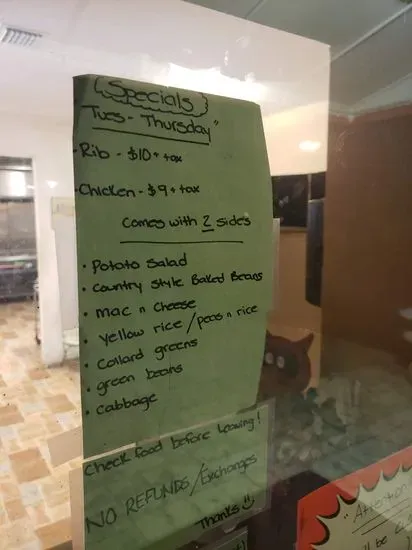 Specials
Tues - Thursday"
-Rib - $10 + tax
-Chicken - $9 + tax
Comes with 2 sides
• Potato Salad
• Country Style Baked Beans
• mac n cheese
• Yellow rice / peas n rice
• Collard greens
• green beans
• cabbage
Check food before leaving!
NO REFUNDS/Exchanges
Thanks
"Attention
be